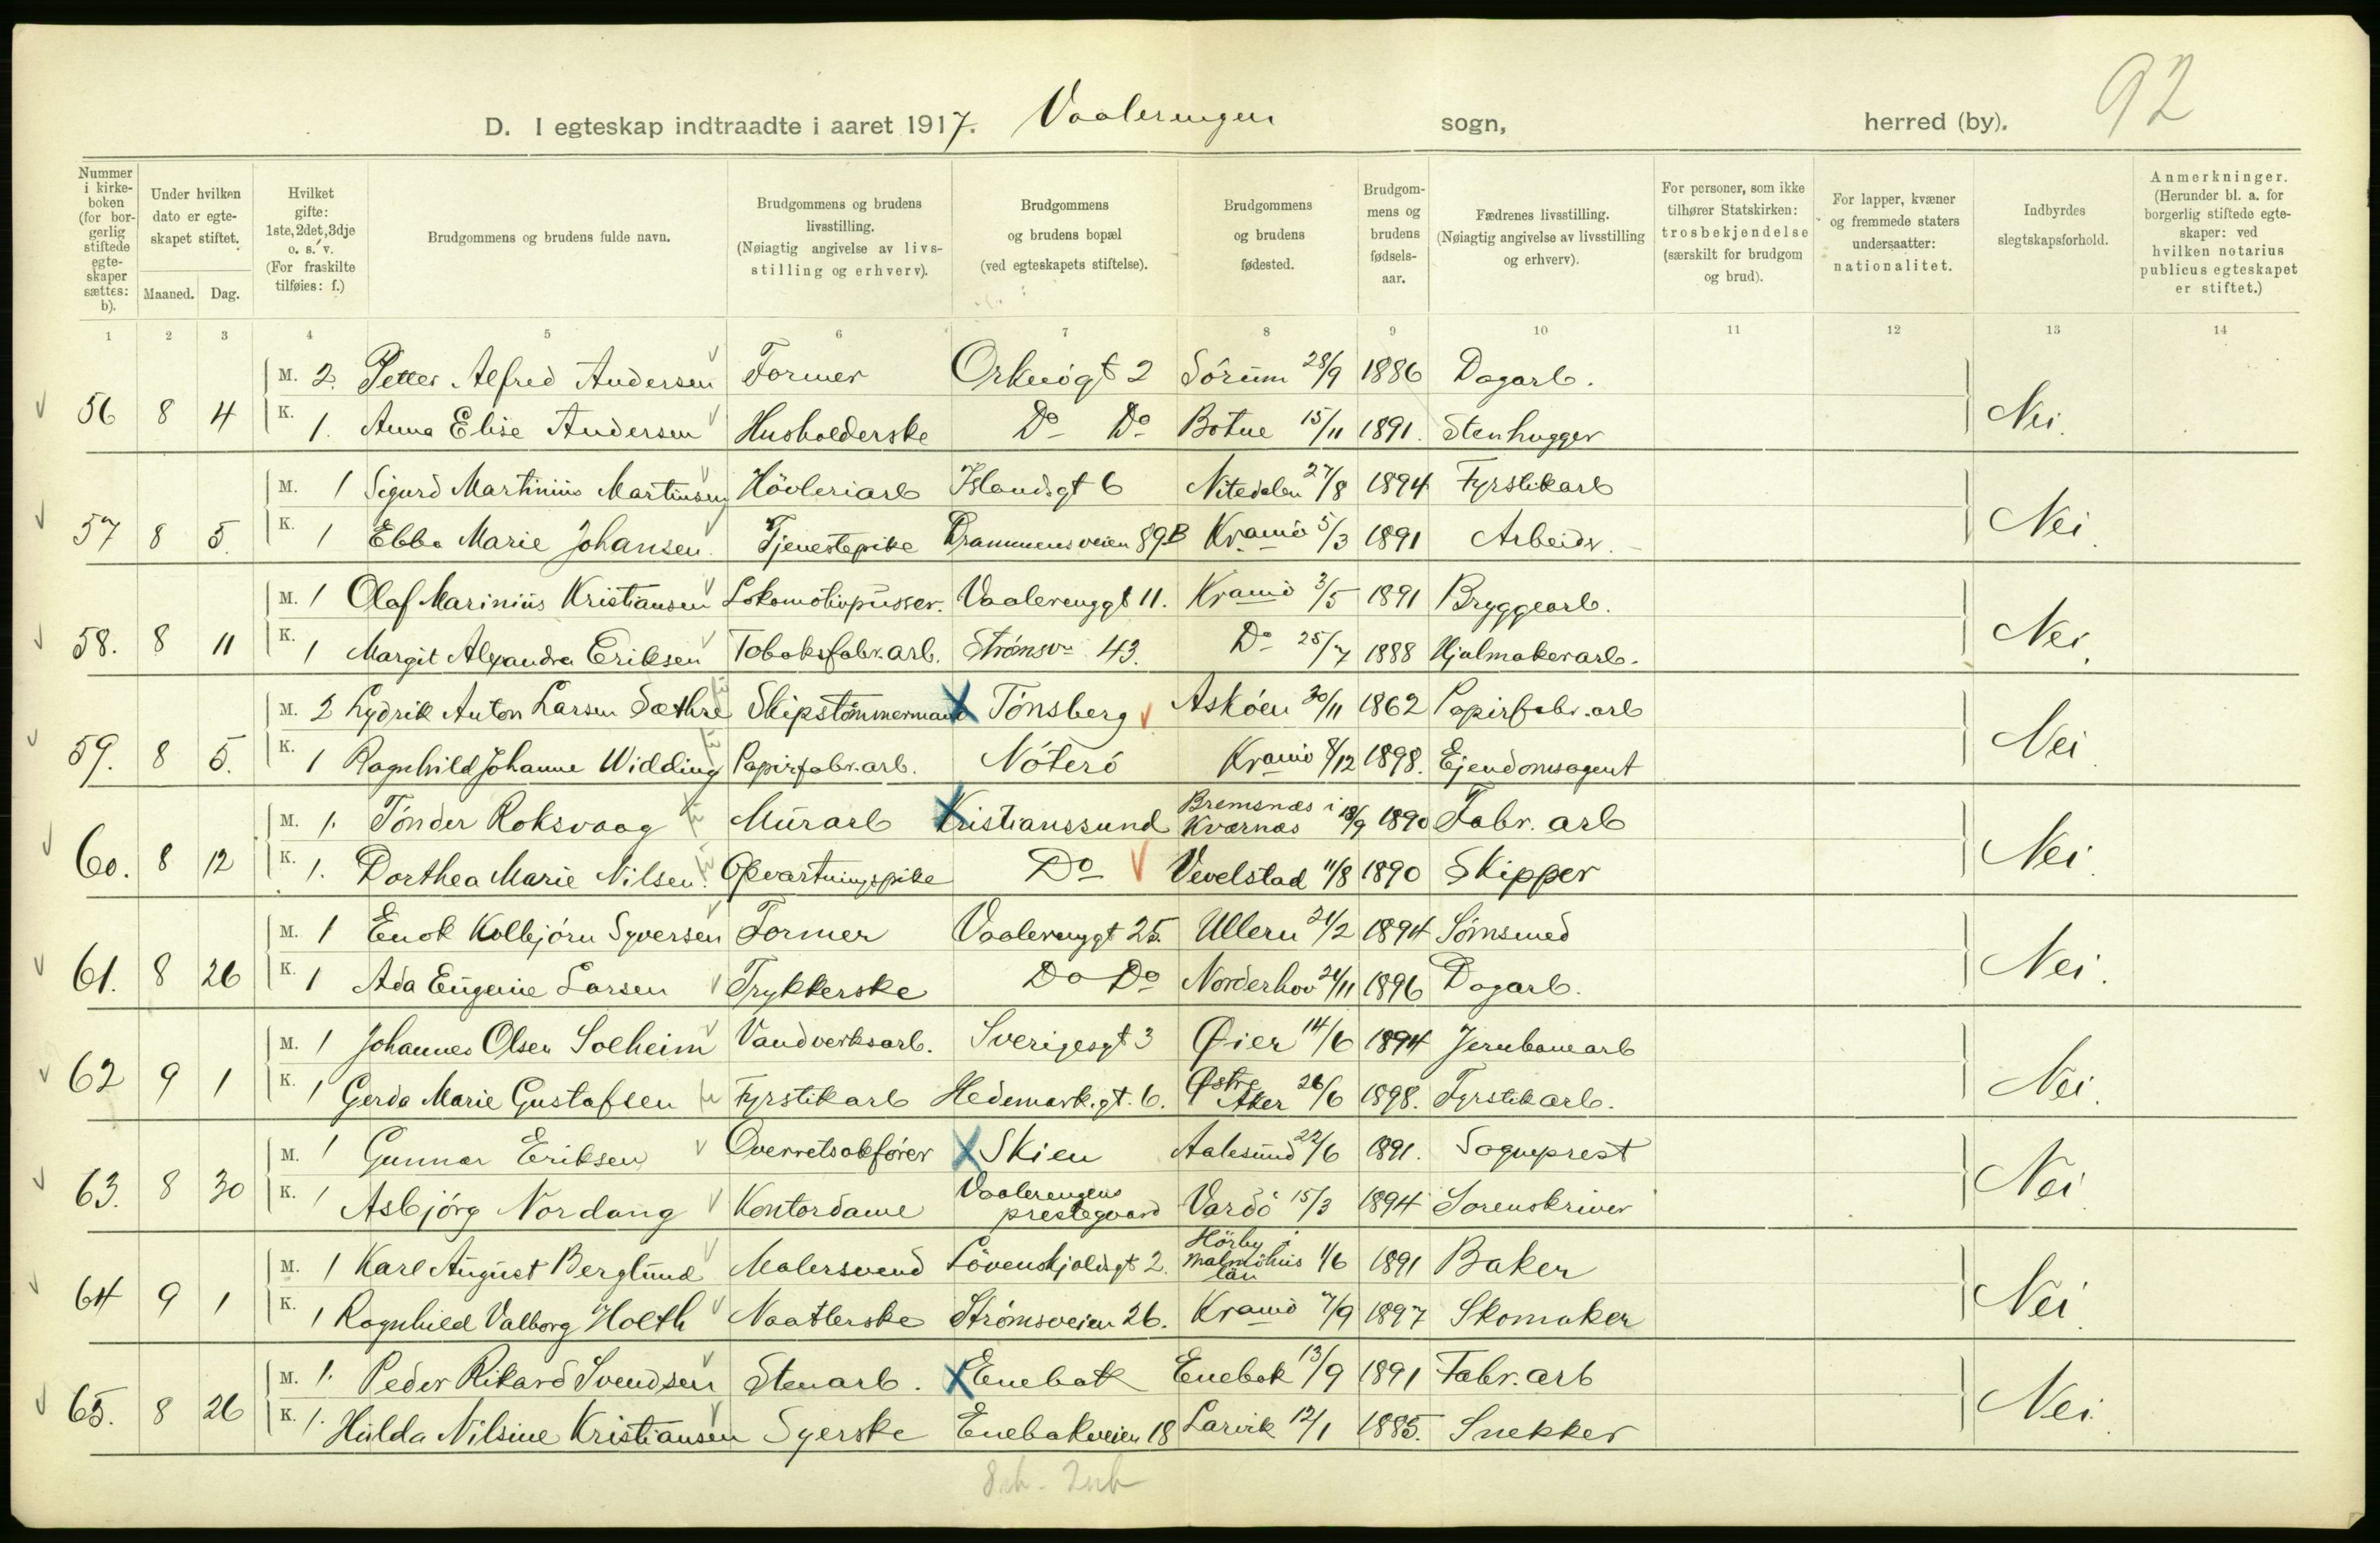 92
D. I egteskap indtraadte i aaret 1917. Vaalerengen sogn, herred (by).
Nummer i kirkeboken (for borgerlig stiftede egteskaper sættes: b).
Under hvilken dato er egteskapet stiftet.
Maaned. Dag.
Hvilket gifte: 1ste, 2det, 3dje o. s. v. (For fraskilte tilføies: f.)
Brudgommens og brudens fulde navn.
Brudgommens og brudens livsstilling. (Nøiagtig angivelse av livsstilling og erhverv).
Brudgommens og brudens bopæl (ved egteskapets stiftelse).
Brudgommens og brudens fødested.
Brudgommens og brudens fødselsaar.
Fædrenes livsstilling. (Nøiagtig angivelse av livsstilling og erhverv).
For personer, som ikke tilhører Statskirken: trosbekjendelse (særskilt for brudgom og brud).
For lapper, kvæner og fremmede staters undersaatter: nationalitet.
Indbyrdes slegtskapsforhold.
Anmerkninger. (Herunder bl. a. for borgerlig stiftede egteskaper: ved hvilken notarius publicus egteskapet er stiftet.)
1 2 3 4 5 6 7 8 9 10 11 12 13 14
M. 2. Petter Alfred Andersen Former Orknøgt 2 Sörum 28/9 1886 Dagarb.
56 8 4 K. 1. Anna Elise Andersen Husholderske Do Do Botne 15/11 1891. Stenhugger Nei.
M. 1 Sigurd Martinius Martinsen Hövleriarb Islandsgt 6 Nitedalen 27/8 1894 Fyrstikarb
57 8 5. K. 1 Ebba Marie Johansen. Tjenestepike Drammensveien 89B Kramö 5/3 1891 Arbeidr. Nei.
M. 1 Olaf Marinius Kristiansen Lokomotivpusser. Vaalerenggt 11. Kramö 3/5 1891 Bryggearb.
58. 8 11 K. 1 Margit Alexandra Eriksen Tobaksfabr.arb. Strømsvn 43. Do 25/7 1888 Hjulmakerarb. Nei.
M. 2 Lydrik Anton Larsen Sæthre Skipstömmermand Tönsberg Asköen 30/11 1862 Papirfabr.arb
59. 8 5. K. 1 Ragnhild Johanne Widding Papirfabr.arb. Nöterö Kramö 8/12 1898. Ejendomsagent Nei
M. 1. Tönder Roksvaag Murarb Kristianssund Bremsnes i Kvernes 18/9 1890 Fabr. arb
60. 8 12 K. 1. Dorthea Marie Nilsen. Opvartningspike Do Vevelstad 11/8 1890 Skipper Nei.
M. 1 Enok Kolbjörn Syversen Former Vaalerenggt 25. Ullern 21/2 1894 Sömsmed
61. 8 26 K. 1 Ada Eugenie Larsen Trykkerske Do Do Norderhov 24/11 1896 Dagarb. Nei.
M. 1 Johannes Olsen Solheim Vandverksarb. Sverigesgt 3 Øier 14/6 1894 Jernbanearb
62 9 1 K. 1 Gerda Marie Gustafsen Fyrstikarb Hedemark.gt. 6. Østre Aker 26/6 1898. Fyrstikarb. Nei.
M. 1 Gunnar Eriksen Overretssakfører Skien Aalesund 22/6 1891. Sogneprest
63. 8 30 K. 1 Asbjörg Nordang Kontordame Vaalerengens prestegaard Vardö 15/3 1894 Sorenskriver Nei
M. 1 Karl August Berglund Malersvend Lövenskjoldsgt 2. Hörby i Malmöhus län 1/6 1891 Baker
64 9 1 K. 1 Ragnhild Valborg Holth Naatlerske Strömsveien 26. Kramö 7/9 1897 Skomaker Nei.
M. 1. Peder Rikard Svendsen Stenarb. Enebak Enebak 13/9 1891 Fabr. arb
65. 8 26 K. 1. Hilda Nilsine Kristiansen Syerske Enebakveien 18 Larvik 12/1 1885. Snekker Nei.